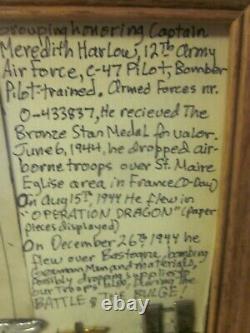 Grouping honoring Captain
Meredith Harlow, 12Th Army
Air force, C-47 Pilot, Bomber
Pilot-trained. Armed Forces nr.
O-433837, He recieved The
Bronze Star Medal for valor.
June 6, 1944, he dropped air-
borne troops over St. Maire
Eglise area in France (D-Day)
On Aug 15Th, 1944 He flew in
"OPERATION DRAGON" (paper
pieces displayed)
On December 26Th 1944 he
flew over Bastogne, bombing
German Man and materials,
possibly dropping supplies to
our Troops also, During the
BATTLE OF THE BULGE!